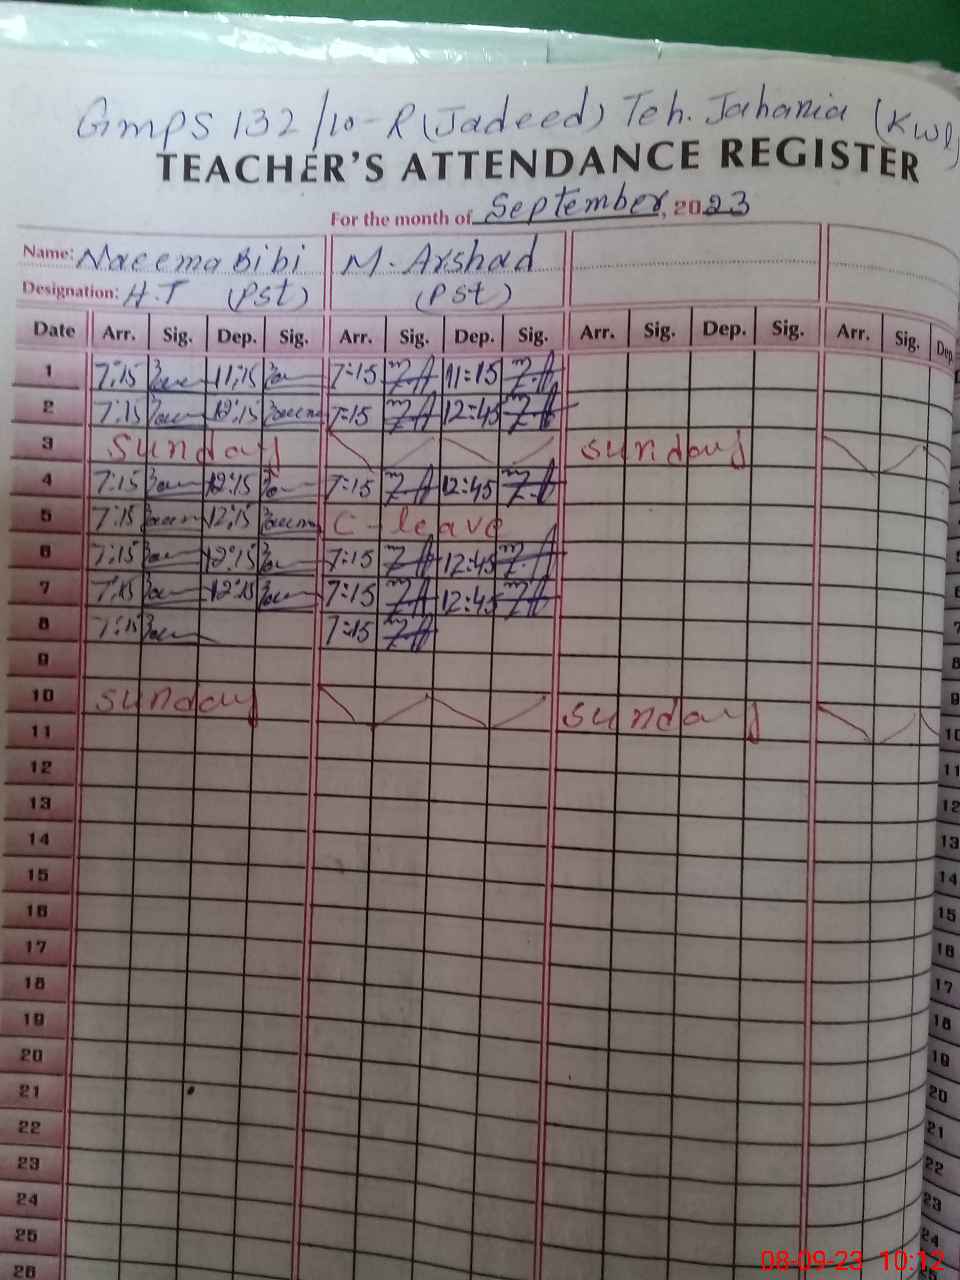 GmPS 132/10-R (Jadeed) Teh. Jahania (Kwl)
TEACHER'S ATTENDANCE REGISTER
For the month of September, 2023
Name: Naeema Bibi M. Arshad
Designation: H.T (PST) (PST)
Date Arr. Sig. Dep. Sig. Arr. Sig. Dep. Sig. Arr. Sig. Dep. Sig. Arr. Sig. Dep.
1 7:15 11:15 7:15 11:15
2 7:15 12:15 7:15 12:45
3 Sunday Sunday
4 7:15 12:15 7:15 12:45
5 7:15 12:15 C-leave
6 7:15 12:15 7:15 12:45
7 7:15 12:15 7:15 12:45
8 7:15 7:15
9
10 Sunday Sunday
11
12
13
14
15
16
17
18
19
20
21
22
23
24
25
26
5
6
7
8
9
10
11
12
13
14
15
16
17
18
19
20
21
22
23
24
08-09-23 10:12